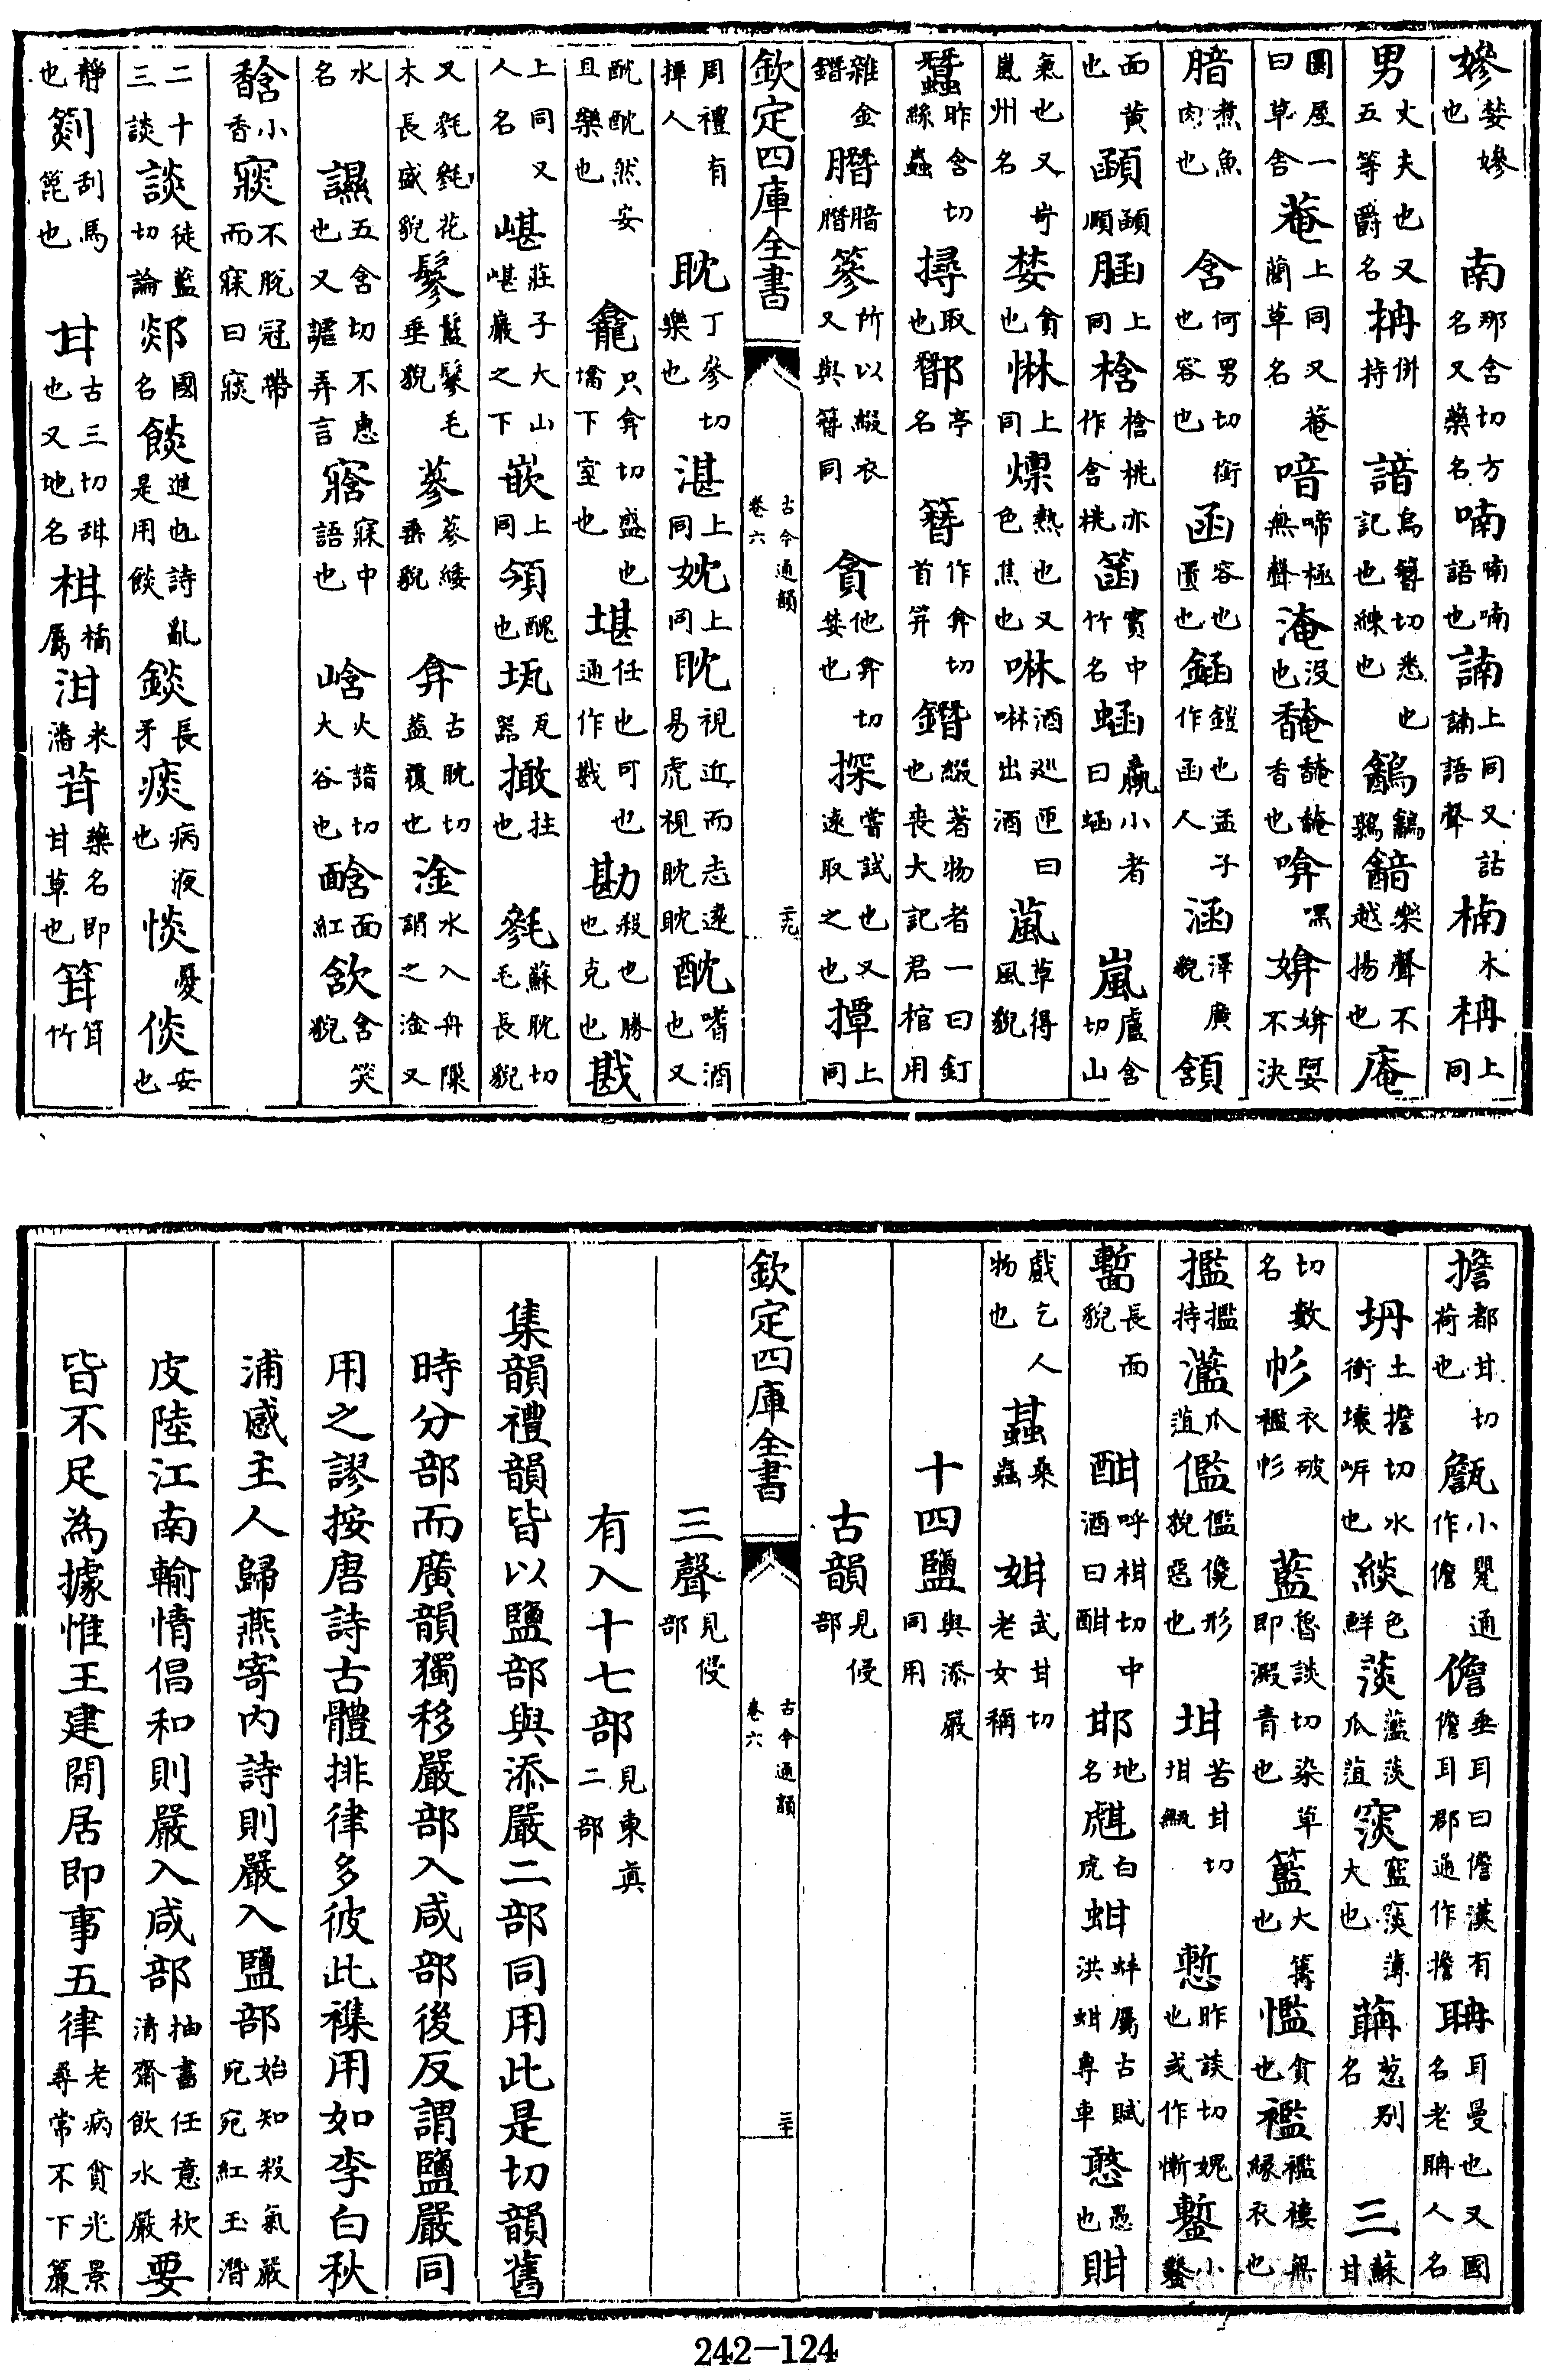 㜗婪㜗也南那含切方名又藥名喃喃喃語也諵上同又詀諵語聲楠木枏上同
男丈夫也又五等爵名枏併持諳烏簪切悉也記也練也鷂韽樂聲不越揚也庵
圜屋一曰草舍菴上同又菴䕡草名喑啼極無聲淹沒也馣馣馣香也嘿媕媕娿不決
腤煮魚肉也含何男切銜也容也函容也匱也鋡鎧也孟子作函人涵澤廣貌頷
面黄也顄上同梒梒桃亦作含桃實中竹名蜬蠃小者曰蜬嵐盧含切山
氣也又岢嵐州名婪貪也惏上同燣熱也又色焦也啉酒巡匝曰啉出酒葻草得風貌
蠶昨含切絲蟲撏取也亭名簪作弇切首筓鐕綴著物者一曰釘也喪大記君棺用
雜金鐕䐶腤䐶篸所以綴衣又與簪同貪他弇切婪也探嘗試也又遠取之也撢上同
欽定四庫全書 古今通韻 卷六 二九
周禮有撢人耽丁參切樂也湛上同妉上同眈視近而志遠易虎視眈眈酖嗜酒也又
酖酖然安且樂也龕只弇切盛也墻下室也堪任也可也通作戡勘殺也勝也克也戡
上同又人名嵁莊子大山嵁巖之下嵌上同頷醜也瓦器撖拄也毿蘇耽切毛長貌
又毿毿花木長盛貌鬖鬖毛垂貌蔘蔘綏垂貌弇古耽切蓋覆也淦水入舟隙謂之淦又
水名五含切不惠也又謔弄言寐中語也峆火諳切大谷也面紅欱含笑貌
馠小香㝥不脫冠帶而寐曰㝥
二十三談談徒藍切論郯國名餤進也詩亂是用餤錟長矛痰病液也惔憂倓安也
靜也刮馬篦也甘古三切甜也又地名柑橘屬泔米潘苷藥名即甘草也竹
擔都甘切荷也甔小甖通作儋儋垂耳曰儋漢有儋耳郡通作擔聃耳曼也又國名老聃人名
坍土擔切水衝壞岸也緂色鮮菼瓜菹大也葱別名三蘇甘
切數名衫衣破襤衫藍魯談切染草即澱青也籃大篝也㜮貪也襤襤褸無緣衣也
㩜㩜持灆瓜菹儖儖儳形貌惡也坩苦甘切坩甌慙昨談切媿也或作慚鏨小鑿
䭕長面貌酣呼柑切中酒曰酣邯地名甝白虎蚶蚌屬古賦洪蚶專車憨愚也㽏
戲乞人物也蠶桑蟲姏武甘切老女稱
十四鹽與添嚴同用
古韻見侵部
欽定四庫全書 古今通韻 卷六 三十
三聲見侵部
有入十七部見東真二部
集韻禮韻皆以鹽部與添嚴二部同用此是切韻舊
時分部而廣韻獨移嚴部入咸部後反謂鹽嚴同
用之謬按唐詩古體排律多彼此襍用如李白秋
浦感主人歸燕寄內詩則嚴入鹽部始知殺氣嚴宛宛紅玉潛
皮陸江南輸情倡和則嚴入咸部抽書任意杴清齋飲水嚴要
皆不足為據惟王建閒居即事五律老病貪光景尋常不下簾
242-124